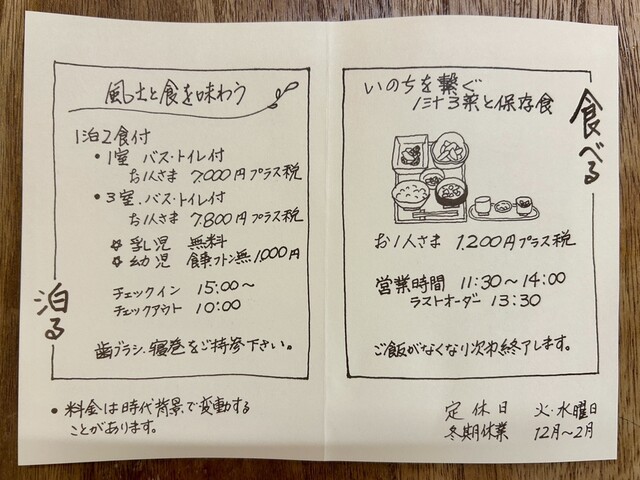 風土と食を味わう
1泊2食付
• 1室 バス・トイレ付
お1人さま 7,000円プラス税
• 3室.バス・トイレ付
お1人さま 7,800円プラス税
✡ 乳児 無料
✡ 幼児 食事フトン無 1,000円
チェックイン 15:00〜
チェックアウト 10:00
歯ブラシ.寝巻をご持参下さい。
泊る
• 料金は時代背景で変動する
ことがあります。
いのちを繋ぐ
1汁3菜と保存食
食べる
お1人さま 1,200円プラス税
営業時間 11:30〜14:00
ラストオーダー 13:30
ご飯がなくなり次㐧終了します。
定休日 火・水曜日
冬期休業 12月〜2月